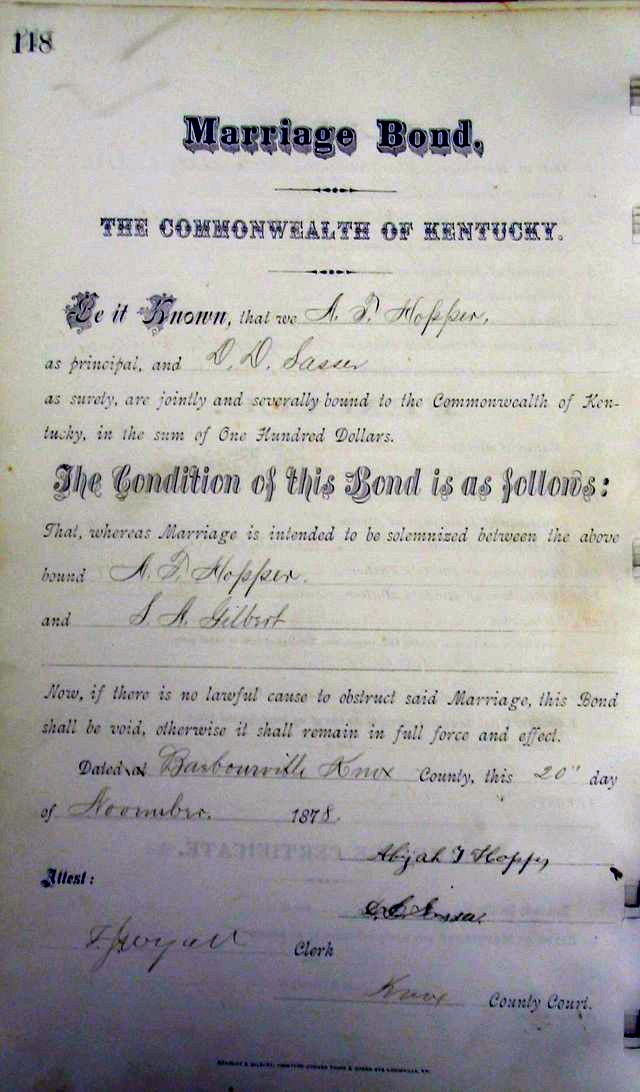 118
Marriage Bond,
THE COMMONWEALTH OF KENTUCKY.
Be it Known, that we A. T. Hopper,
as principal, and D. D. Sasser
as surety, are jointly and severally bound to the Commonwealth of Ken-
tucky, in the sum of One Hundred Dollars.
The Condition of this Bond is as follows:
That, whereas Marriage is intended to be solemnized between the above
bound A. T. Hopper.
and S. A. Gilbert
Now, if there is no lawful cause to obstruct said Marriage, this Bond
shall be void, otherwise it shall remain in full force and effect.
Dated at Barbourville Knox County, this 20" day
of November. 1878.
Abijah T Hopper
Attest:
Clerk
Knox County Court.